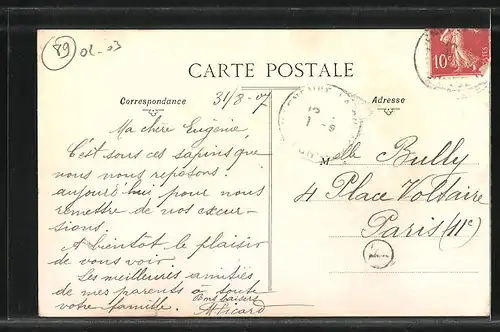 89 02-03
10c
CARTE POSTALE
Correspondance
Adresse
31/8-07
Ma chère Eugénie,
C'est sous ces sapins que
nous nous reposons
aujourd'hui pour nous
remettre de nos excur-
sions.
A bientôt le plaisir
de vous voir.
Les meilleures amitiés
de mes parents à toute
votre famille. Bons baisers
Mlle Bully
4 Place Voltaire
Paris (11e)